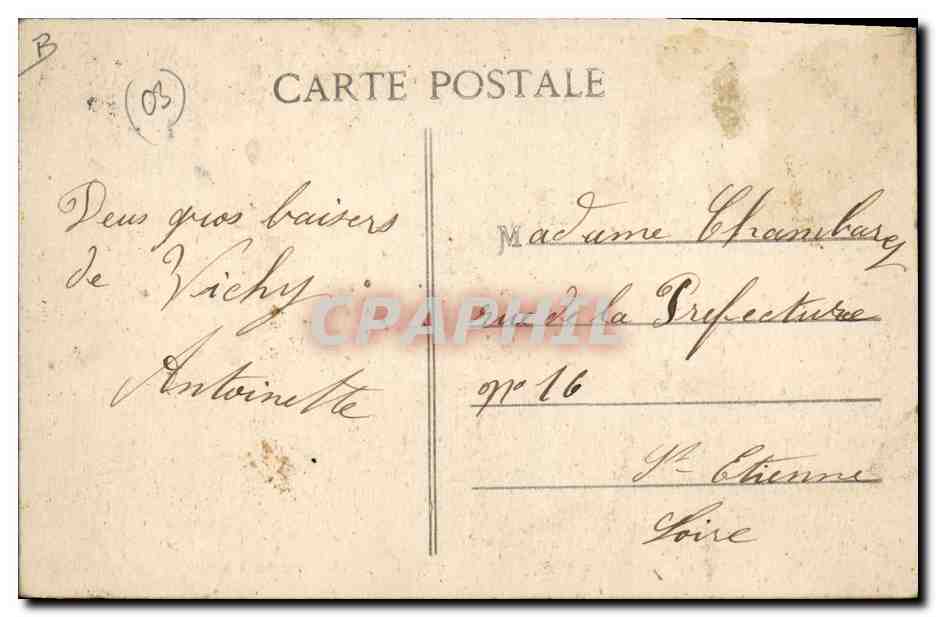 B
03
CARTE POSTALE
Deus gros baisers
de Vichy
Antoinette
Madame
rue de la Prefecture
no 16
St Etienne
Loire
CPAPHIL